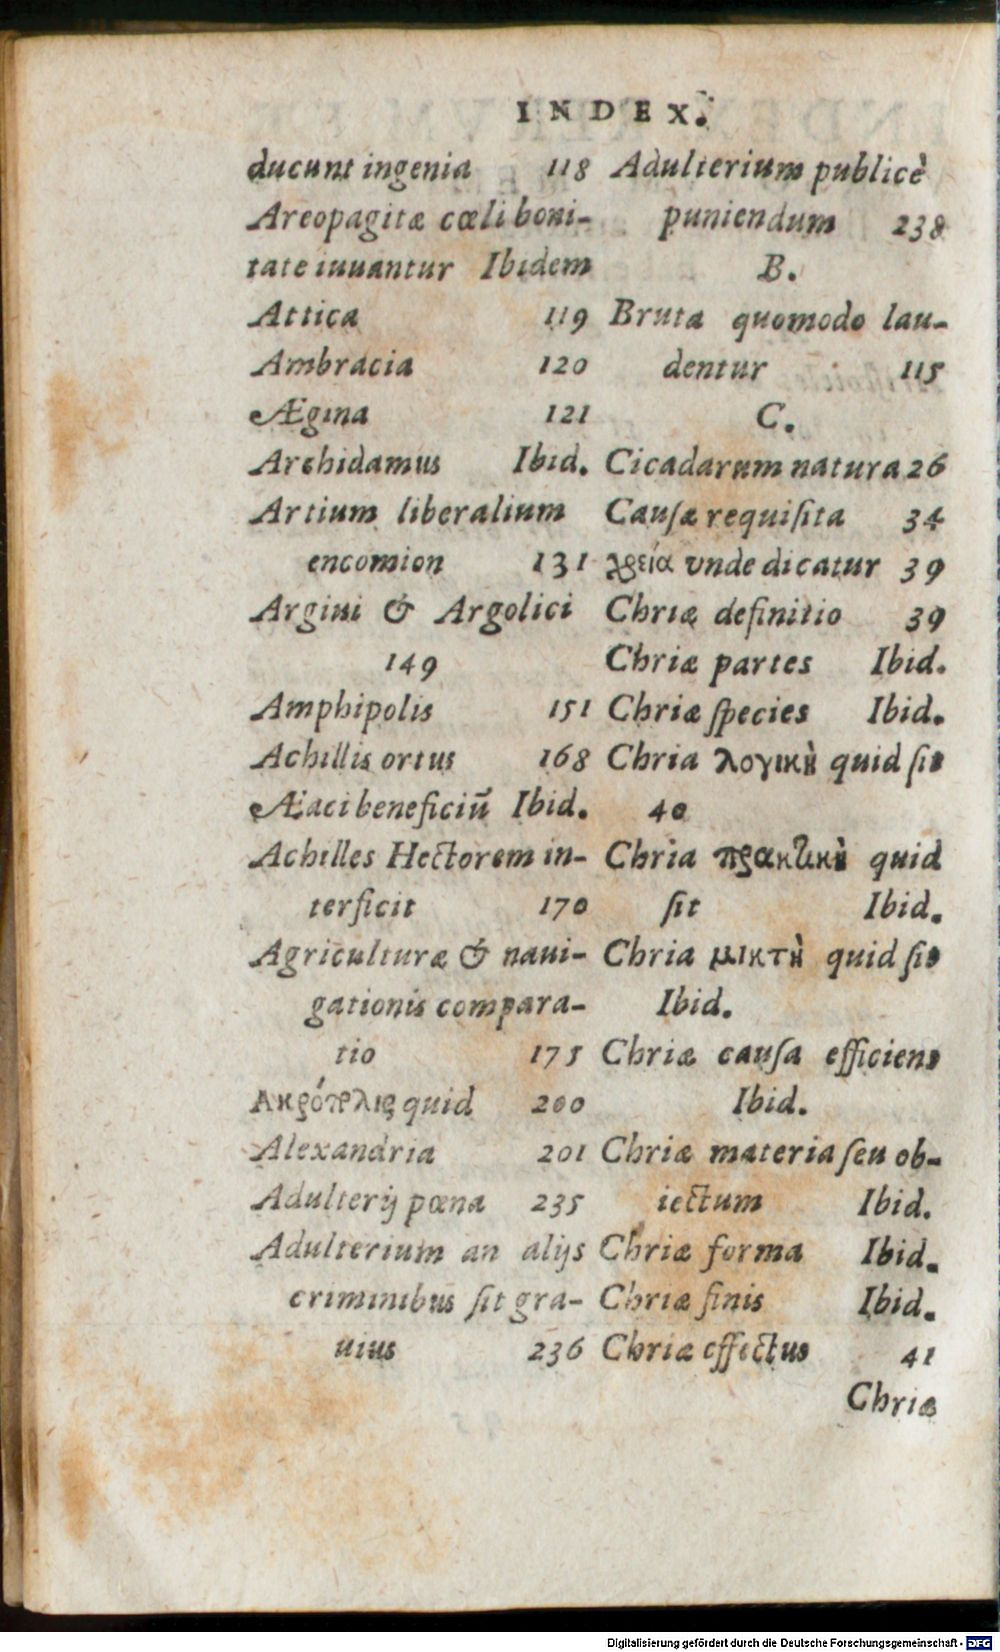 INDEX.
ducunt ingenia 118
Areopagitæ cœli boni-
tate iuuantur Ibidem
Attica 119
Ambracia 120
Ægina 121
Archidamus Ibid.
Artium liberalium
encomion 131
Argiui & Argolici
149
Amphipolis 151
Achillis ortus 168
Æaci beneficiū Ibid.
Achilles Hectorem in-
terficit 170
Agriculturæ & naui-
gationis compara-
tio 175
Ακρόπολις quid 200
Alexandria 201
Adulterij pœna 235
Adulterium an alijs
criminibus ſit gra-
uius 236
Adulterium publicè
puniendum 238
B.
Bruta quomodo lau-
dentur 115
C.
Cicadarum natura 26
Cauſæ requiſita 34
χρεία vnde dicatur 39
Chriæ definitio 39
Chriæ partes Ibid.
Chriæ ſpecies Ibid.
Chria λογικὴ quid ſit
40
Chria πρακτικὴ quid
ſit Ibid.
Chria μικτὴ quid ſit
Ibid.
Chriæ cauſa efficiens
Ibid.
Chriæ materia ſeu ob-
iectum Ibid.
Chriæ forma Ibid.
Chriæ finis Ibid.
Chriæ effectus 41
Chriæ
Digitalisierung gefördert durch die Deutsche Forschungsgemeinschaft - DFG